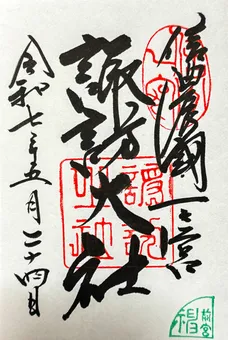 信濃國一之宮
諏訪大社
令和七年五月二十四日
前宮